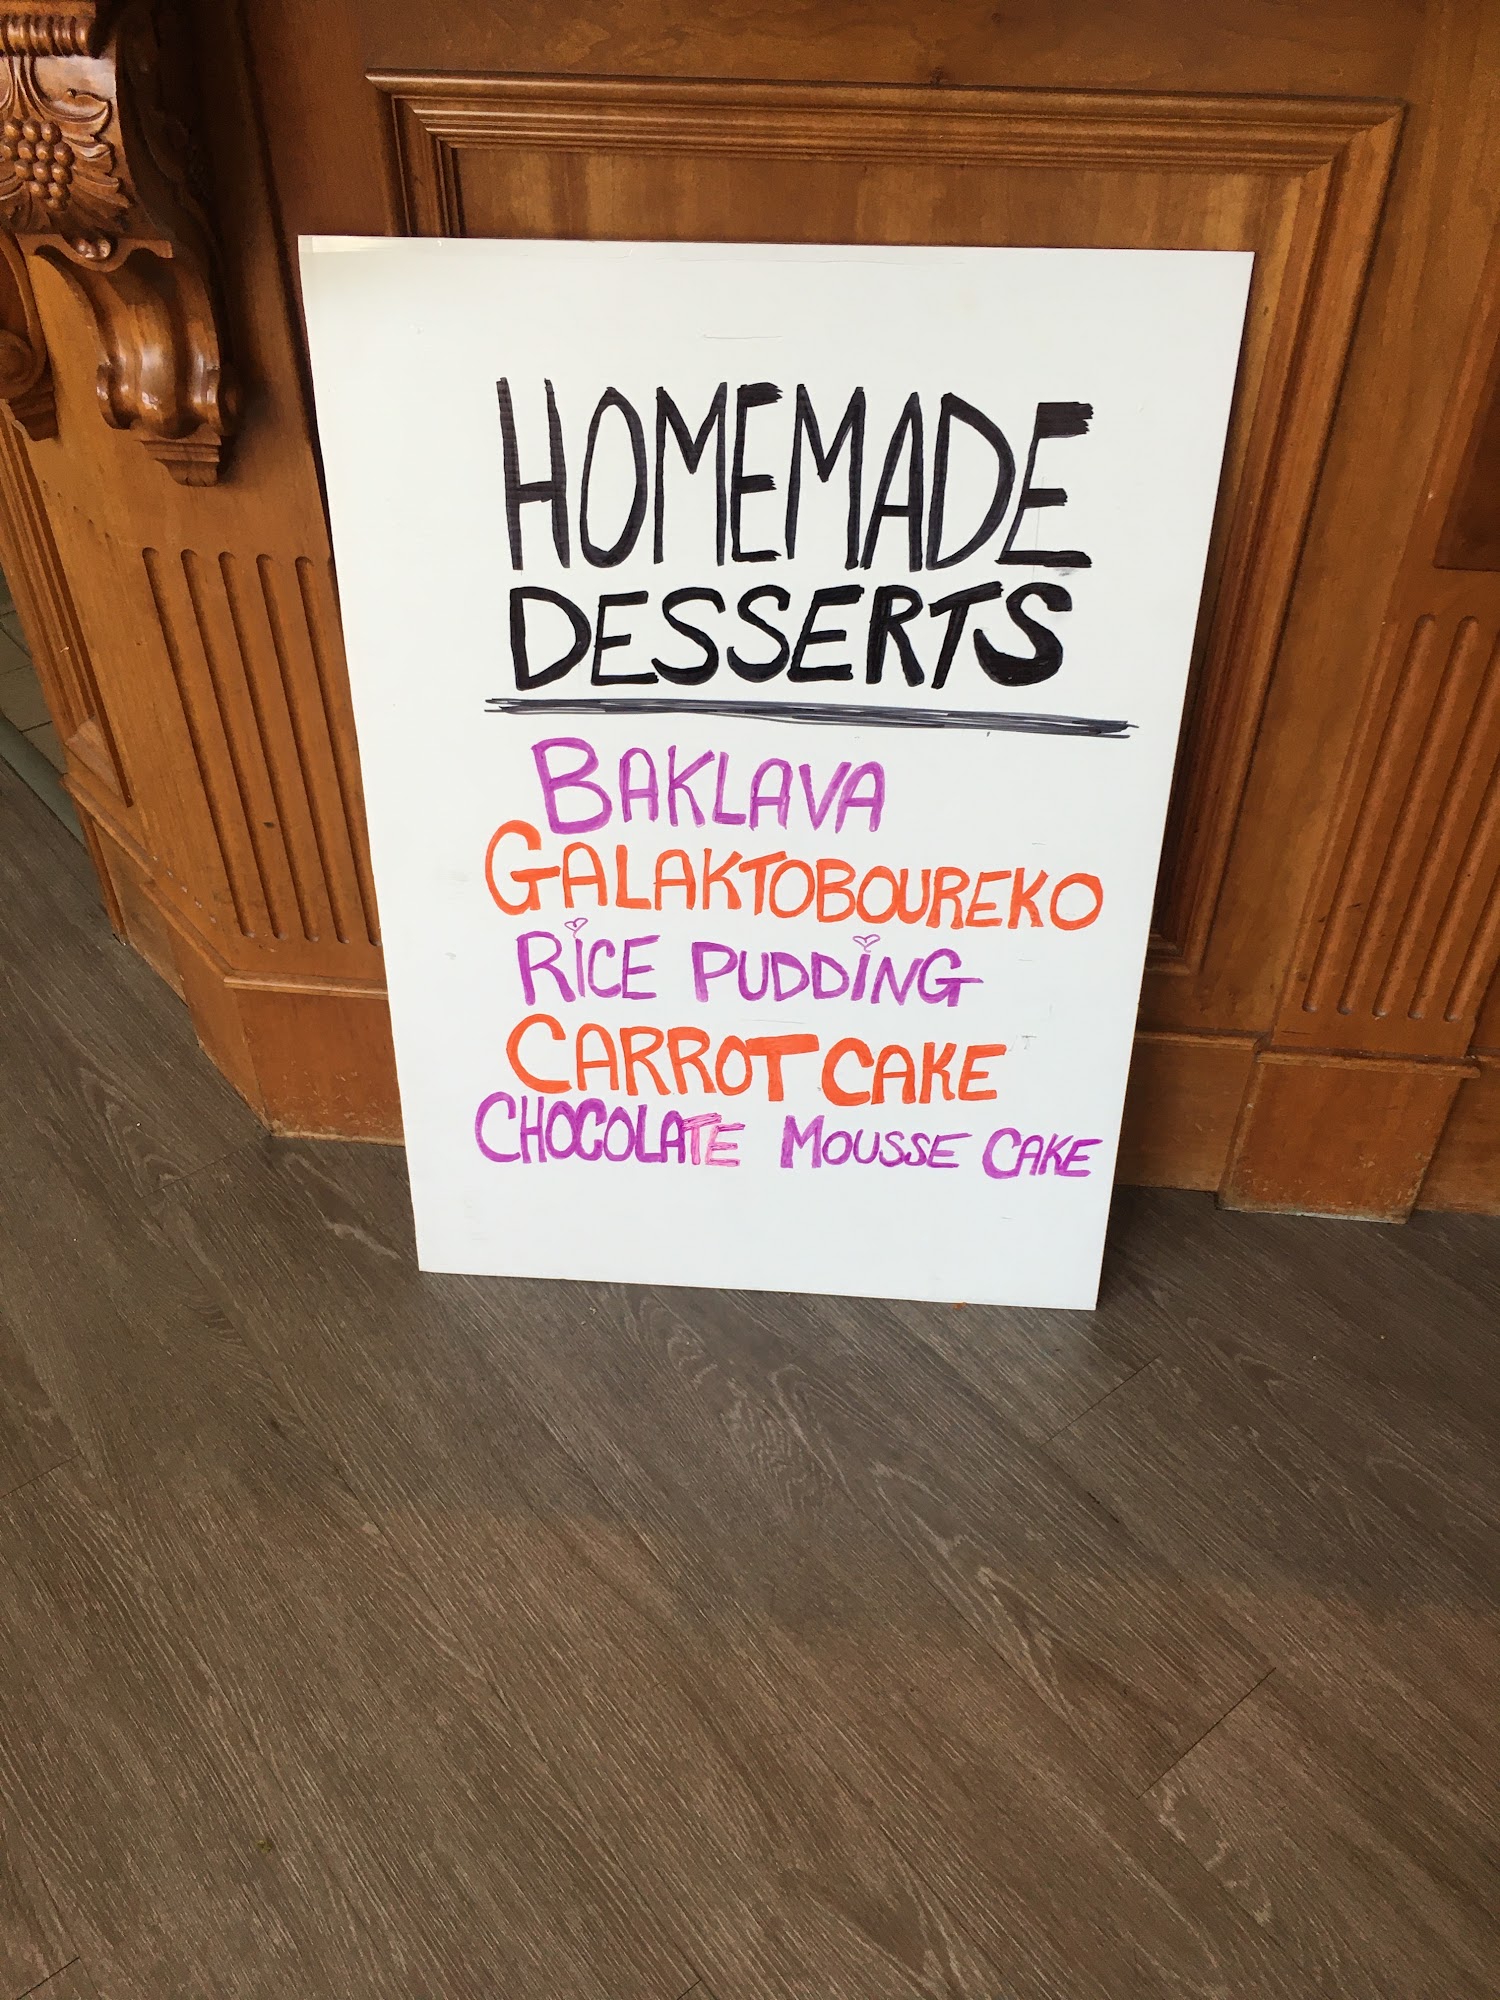 HOMEMADE
DESSERTS
BAKLAVA
GALAKTOBOUREKO
RiCE PUDDiNG
CARROT CAKE
CHOCOLATE MOUSSE CAKE